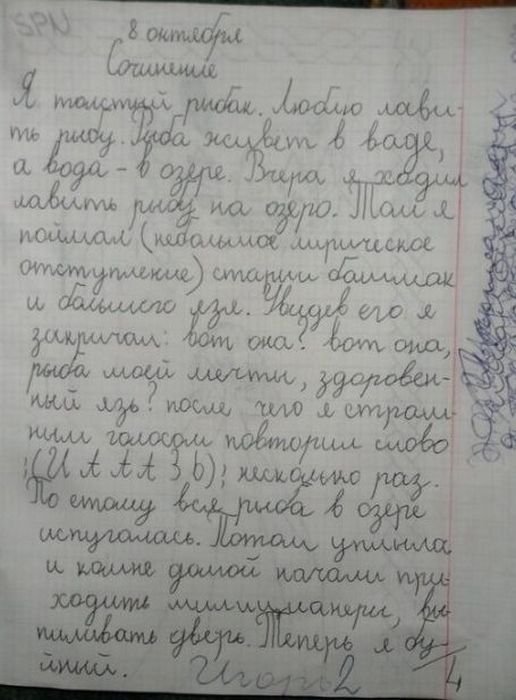 SPN
8 октября
Сочинение
Я толстый рыбак. Люблю лави-
ть рыбу. Рыба живет в ваде,
а вода - в озере. Вчера я ходил
лавить рыбу на озеро. Там я
поймал (небольшое лирическое
отступление) старый башмак
и большого язя. Увидев его я
закричал: вот она? вот она,
рыба моей мечты, здоровен-
ный язь? после чего я страш-
ным голосом повторил слово
;(И А А А З Ь); несколько раз.
По етому вся рыба в озере
испугалась. Потом уплыла
и комне домой начали при-
ходить милицианеры, вы-
пиливать дверь. Теперь я бу-
йный.
Игорь 2
4